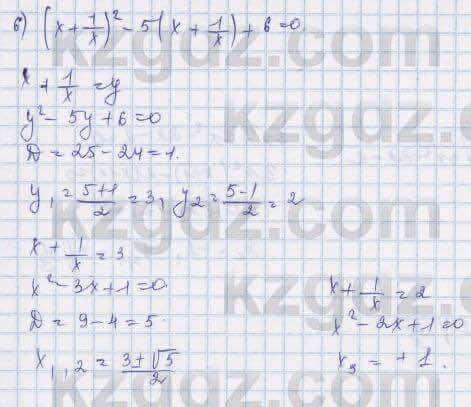 б) (x + 1/x)² - 5(x + 1/x) + 6 = 0
x + 1/x = y
y² - 5y + 6 = 0
D = 25 - 24 = 1.
y₁ = (5+1)/2 = 3, y₂ = (5-1)/2 = 2
x + 1/x = 3
x² - 3x + 1 = 0.
D = 9 - 4 = 5.
x₁,₂ = (3 ± √5)/2
x + 1/x = 2
x² - 2x + 1 = 0
x₃ = + 1.
kzgdz.com
kzgdz.com
kzgdz.com
kzgdz.com